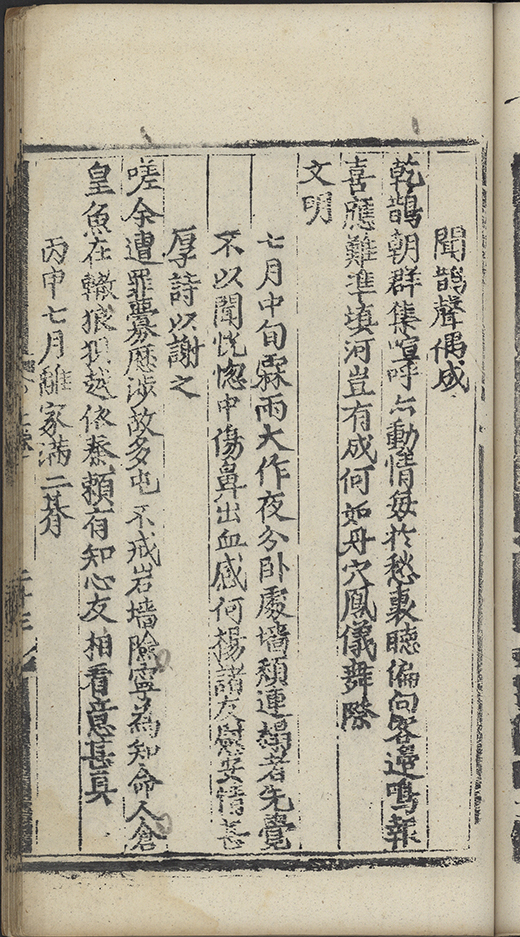 聞鵲聲偶成
乾鵲朝群集喧呼亦動情每於愁裏聽偏向客邊鳴報
喜應難準填河豈有成何如丹穴鳳儀舞際
文明
七月中旬霖雨大作夜分卧處墻頹連榻者先覺
不以聞恍惚中傷鼻出血感何楊諸友慰安情甚
厚詩以謝之
嗟余遭罪釁歷涉故多屯不戒岩墻險寧為知命人倉
皇魚在轍狼狽越依秦賴有知心友相看意甚真
丙申七月離家滿二朞